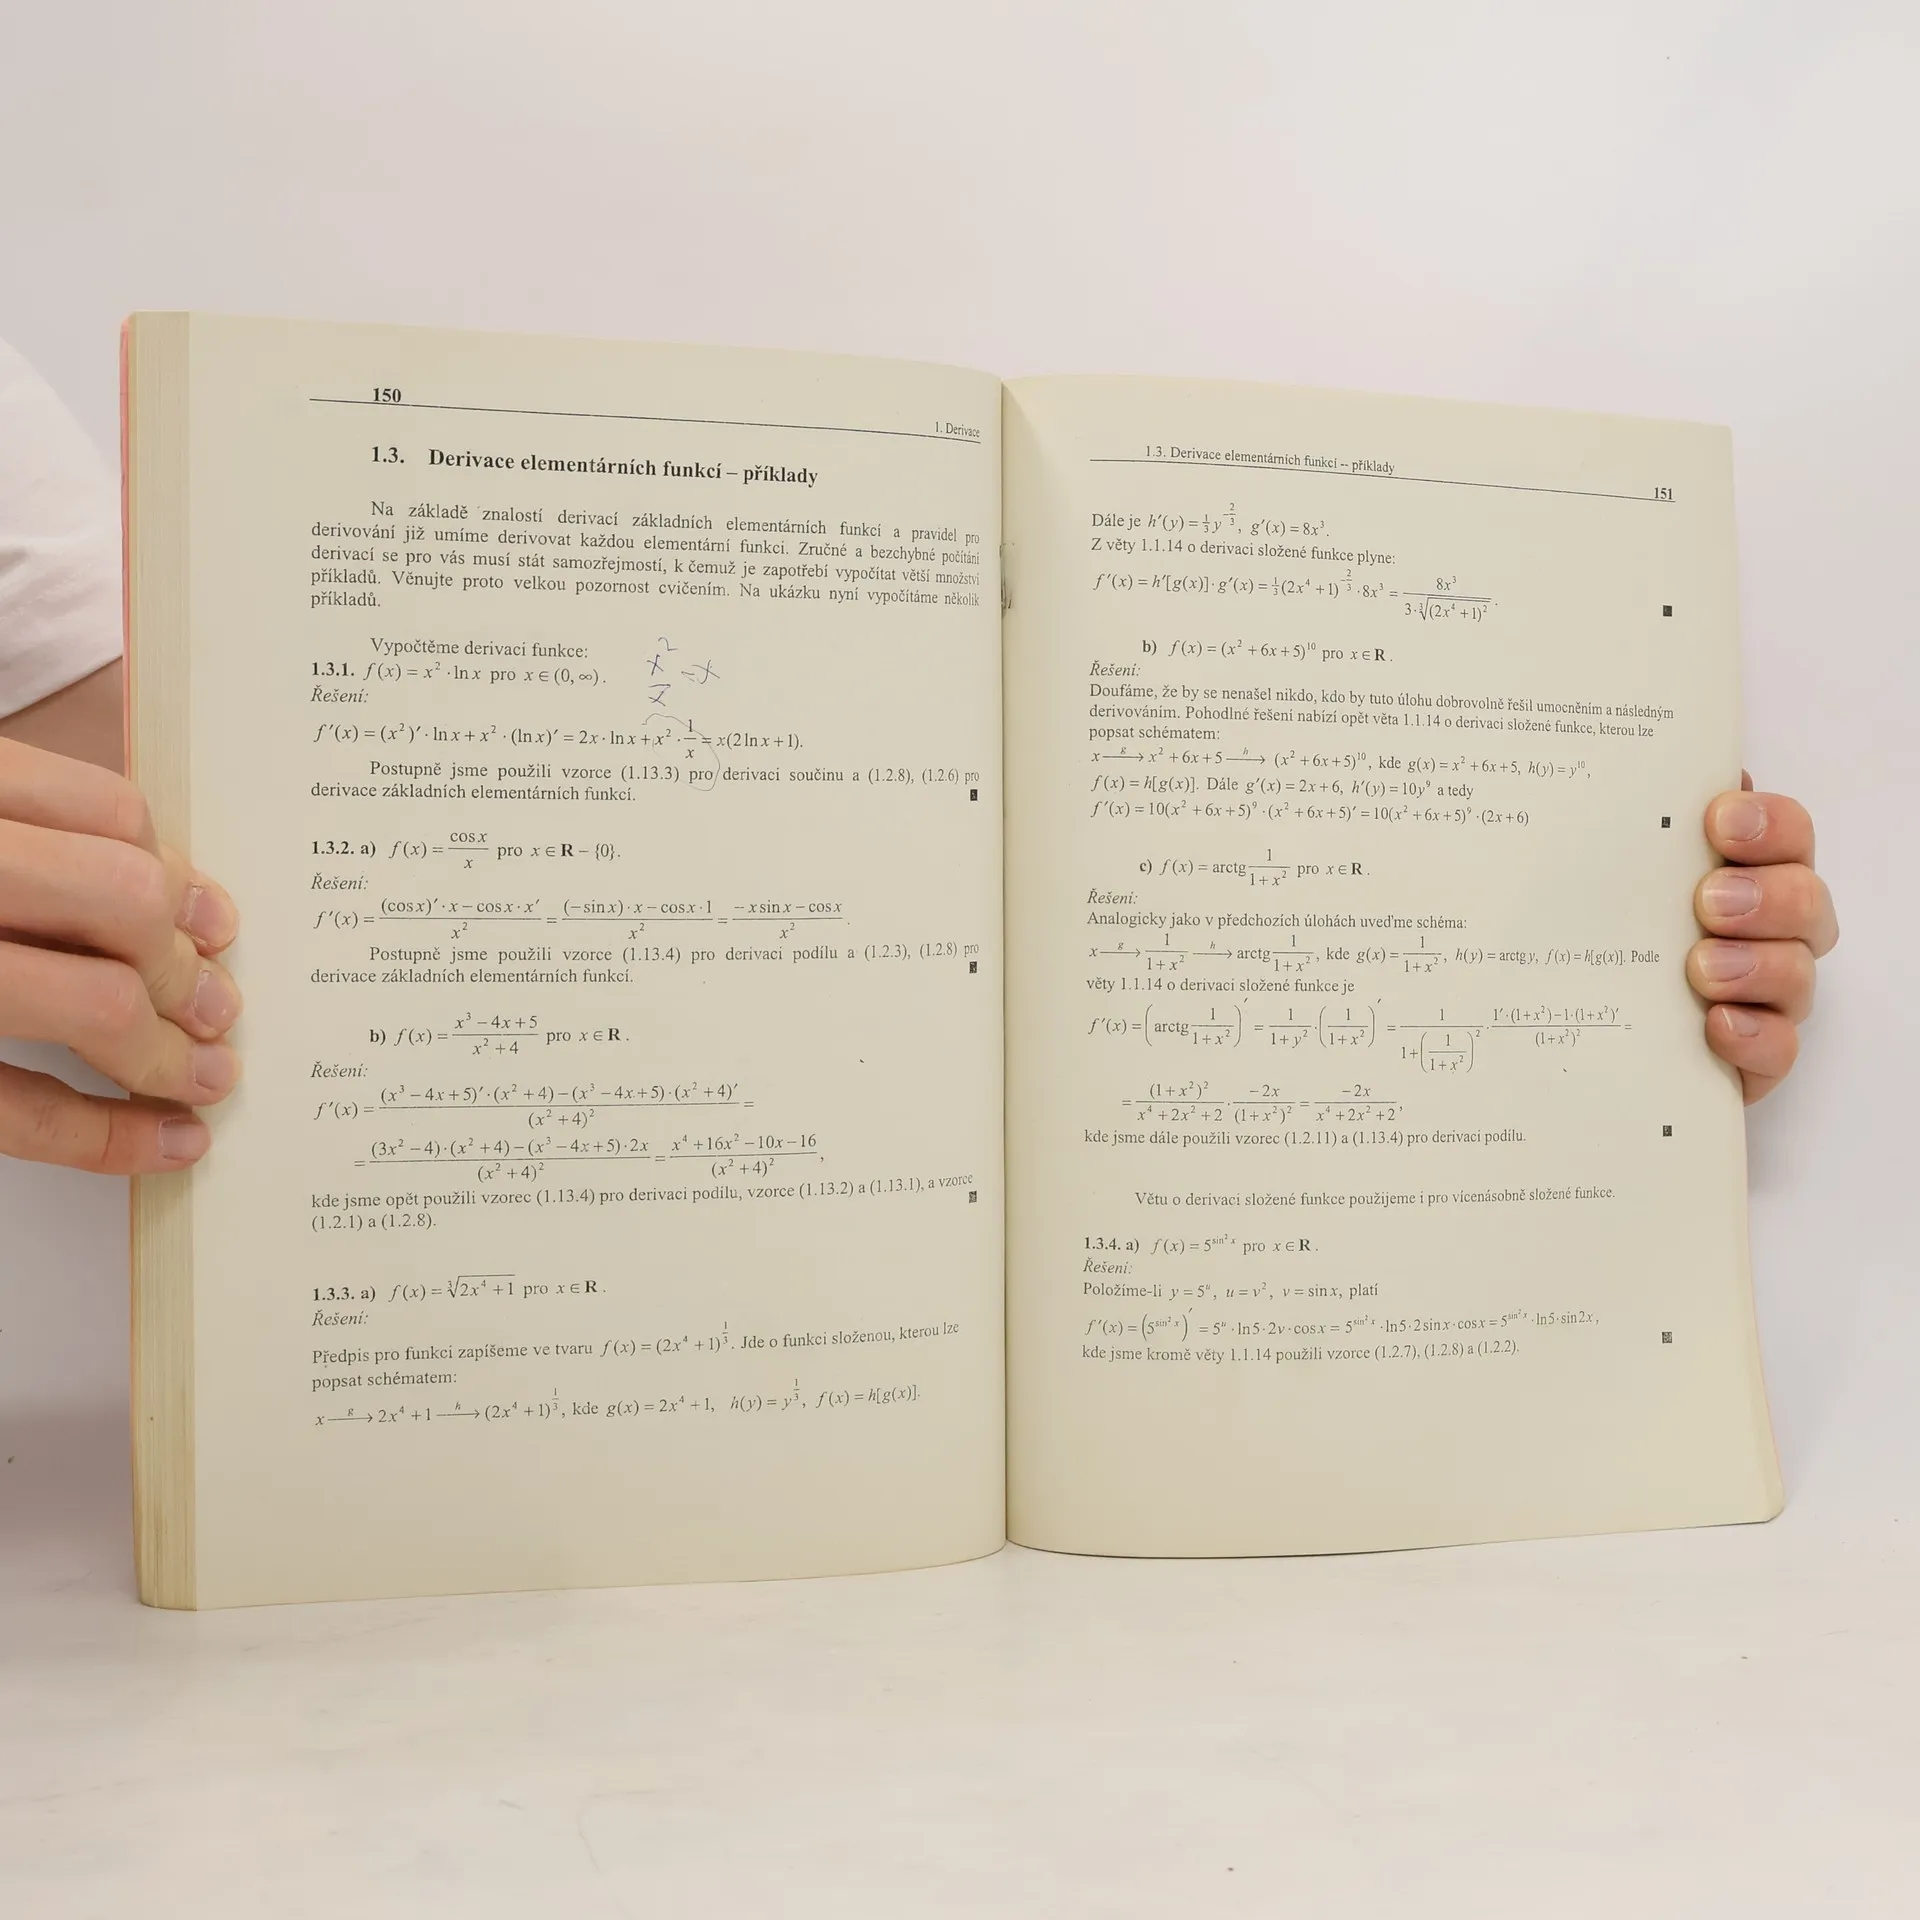 150
1. Derivace
1.3. Derivace elementárních funkcí – příklady
Na základě znalostí derivací základních elementárních funkcí a pravidel pro
derivování již umíme derivovat každou elementární funkci. Zručné a bezchybné počítání
derivací se pro vás musí stát samozřejmostí, k čemuž je zapotřebí vypočítat větší množství
příkladů. Věnujte proto velkou pozornost cvičením. Na ukázku nyní vypočítáme několik
příkladů.
Vypočtěme derivaci funkce:
1.3.1. f(x) = x² · ln x pro x ∈ (0, ∞).
x²/x = x
Řešení:
f′(x) = (x²)′ · ln x + x² · (ln x)′ = 2x · ln x + x² · 1/x = x(2 ln x + 1).
Postupně jsme použili vzorce (1.13.3) pro derivaci součinu a (1.2.8), (1.2.6) pro
derivace základních elementárních funkcí.
1.3.2. a) f(x) = cos x / x pro x ∈ R – {0}.
Řešení:
f′(x) = ((cos x)′ · x – cos x · x′)/x² = ((– sin x) · x – cos x · 1)/x² = (– x sin x – cos x)/x².
Postupně jsme použili vzorce (1.13.4) pro derivaci podílu a (1.2.3), (1.2.8) pro
derivace základních elementárních funkcí.
b) f(x) = (x³ – 4x + 5)/(x² + 4) pro x ∈ R.
Řešení:
f′(x) = ((x³ – 4x + 5)′ · (x² + 4) – (x³ – 4x + 5) · (x² + 4)′)/(x² + 4)² =
= ((3x² – 4) · (x² + 4) – (x³ – 4x + 5) · 2x)/(x² + 4)² = (x⁴ + 16x² – 10x – 16)/(x² + 4)²,
kde jsme opět použili vzorec (1.13.4) pro derivaci podílu, vzorce (1.13.2) a (1.13.1), a vzorce
(1.2.1) a (1.2.8).
1.3.3. a) f(x) = ∛(2x⁴ + 1) pro x ∈ R.
Řešení:
Předpis pro funkci zapíšeme ve tvaru f(x) = (2x⁴ + 1)^(1/3). Jde o funkci složenou, kterou lze
popsat schématem:
x —g→ 2x⁴ + 1 —h→ (2x⁴ + 1)^(1/3), kde g(x) = 2x⁴ + 1, h(y) = y^(1/3), f(x) = h[g(x)].
1.3. Derivace elementárních funkcí -- příklady
151
Dále je h′(y) = ⅓ y^(–2/3), g′(x) = 8x³.
Z věty 1.1.14 o derivaci složené funkce plyne:
f′(x) = h′[g(x)] · g′(x) = ⅓(2x⁴ + 1)^(–2/3) · 8x³ = 8x³/(3 · ∛(2x⁴ + 1)²).
b) f(x) = (x² + 6x + 5)¹⁰ pro x ∈ R.
Řešení:
Doufáme, že by se nenašel nikdo, kdo by tuto úlohu dobrovolně řešil umocněním a následným
derivováním. Pohodlné řešení nabízí opět věta 1.1.14 o derivaci složené funkce, kterou lze
popsat schématem:
x —g→ x² + 6x + 5 —h→ (x² + 6x + 5)¹⁰, kde g(x) = x² + 6x + 5, h(y) = y¹⁰,
f(x) = h[g(x)]. Dále g′(x) = 2x + 6, h′(y) = 10y⁹ a tedy
f′(x) = 10(x² + 6x + 5)⁹ · (x² + 6x + 5)′ = 10(x² + 6x + 5)⁹ · (2x + 6)
c) f(x) = arctg 1/(1 + x²) pro x ∈ R.
Řešení:
Analogicky jako v předchozích úlohách uveďme schéma:
x —g→ 1/(1 + x²) —h→ arctg 1/(1 + x²), kde g(x) = 1/(1 + x²), h(y) = arctg y, f(x) = h[g(x)]. Podle
věty 1.1.14 o derivaci složené funkce je
f′(x) = (arctg 1/(1 + x²))′ = 1/(1 + y²) · (1/(1 + x²))′ = 1/(1 + (1/(1 + x²))²) · (1′ · (1 + x²) – 1 · (1 + x²)′)/(1 + x²)² =
= (1 + x²)²/(x⁴ + 2x² + 2) · –2x/(1 + x²)² = –2x/(x⁴ + 2x² + 2),
kde jsme dále použili vzorec (1.2.11) a (1.13.4) pro derivaci podílu.
Větu o derivaci složené funkce použijeme i pro vícenásobně složené funkce.
1.3.4. a) f(x) = 5^(sin² x) pro x ∈ R.
Řešení:
Položíme-li y = 5ᵘ, u = v², v = sin x, platí
f′(x) = (5^(sin² x))′ = 5ᵘ · ln 5 · 2v · cos x = 5^(sin² x) · ln 5 · 2 sin x · cos x = 5^(sin² x) · ln 5 · sin 2x,
kde jsme kromě věty 1.1.14 použili vzorce (1.2.7), (1.2.8) a (1.2.2).